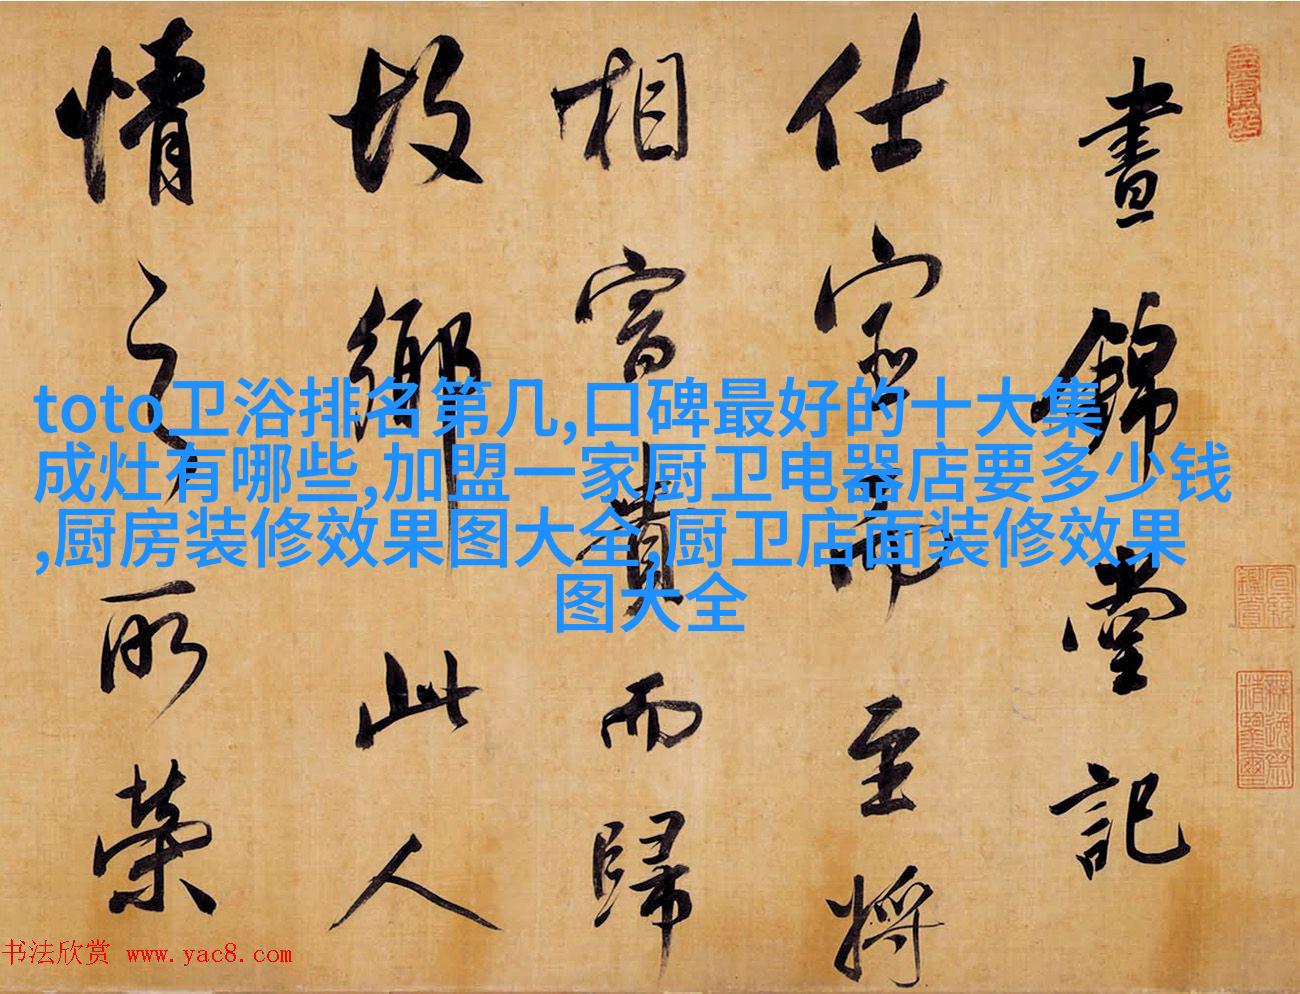 晝錦堂記
仕宦而至將
相富貴而歸
故鄉此人
情之所榮
toto卫浴排名第几,口碑最好的十大集
成灶有哪些,加盟一家厨卫电器店要多少钱
,厨房装修效果图大全,厨卫店面装修效果
图大全
书法欣赏 www.yac8.com